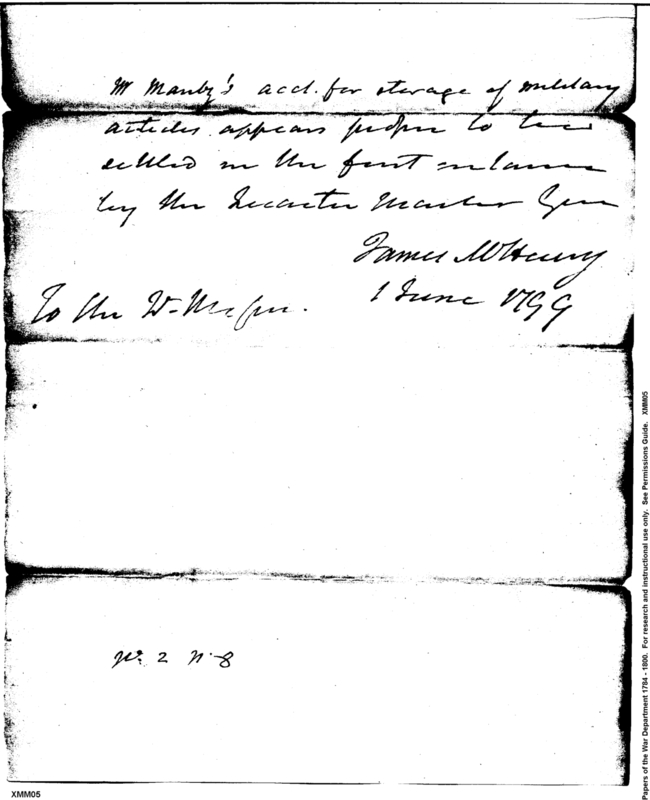 Mr Manby's acct. for storage of military
articles appears proper to be
settled in the first instance
by the Quarter Master Gen
James McHenry
1 June 1799
To the
No. 2 N. 8
Papers of the War Department 1784 - 1800. For research and instructional use only. See Permissions Guide. XMM05
XMM05